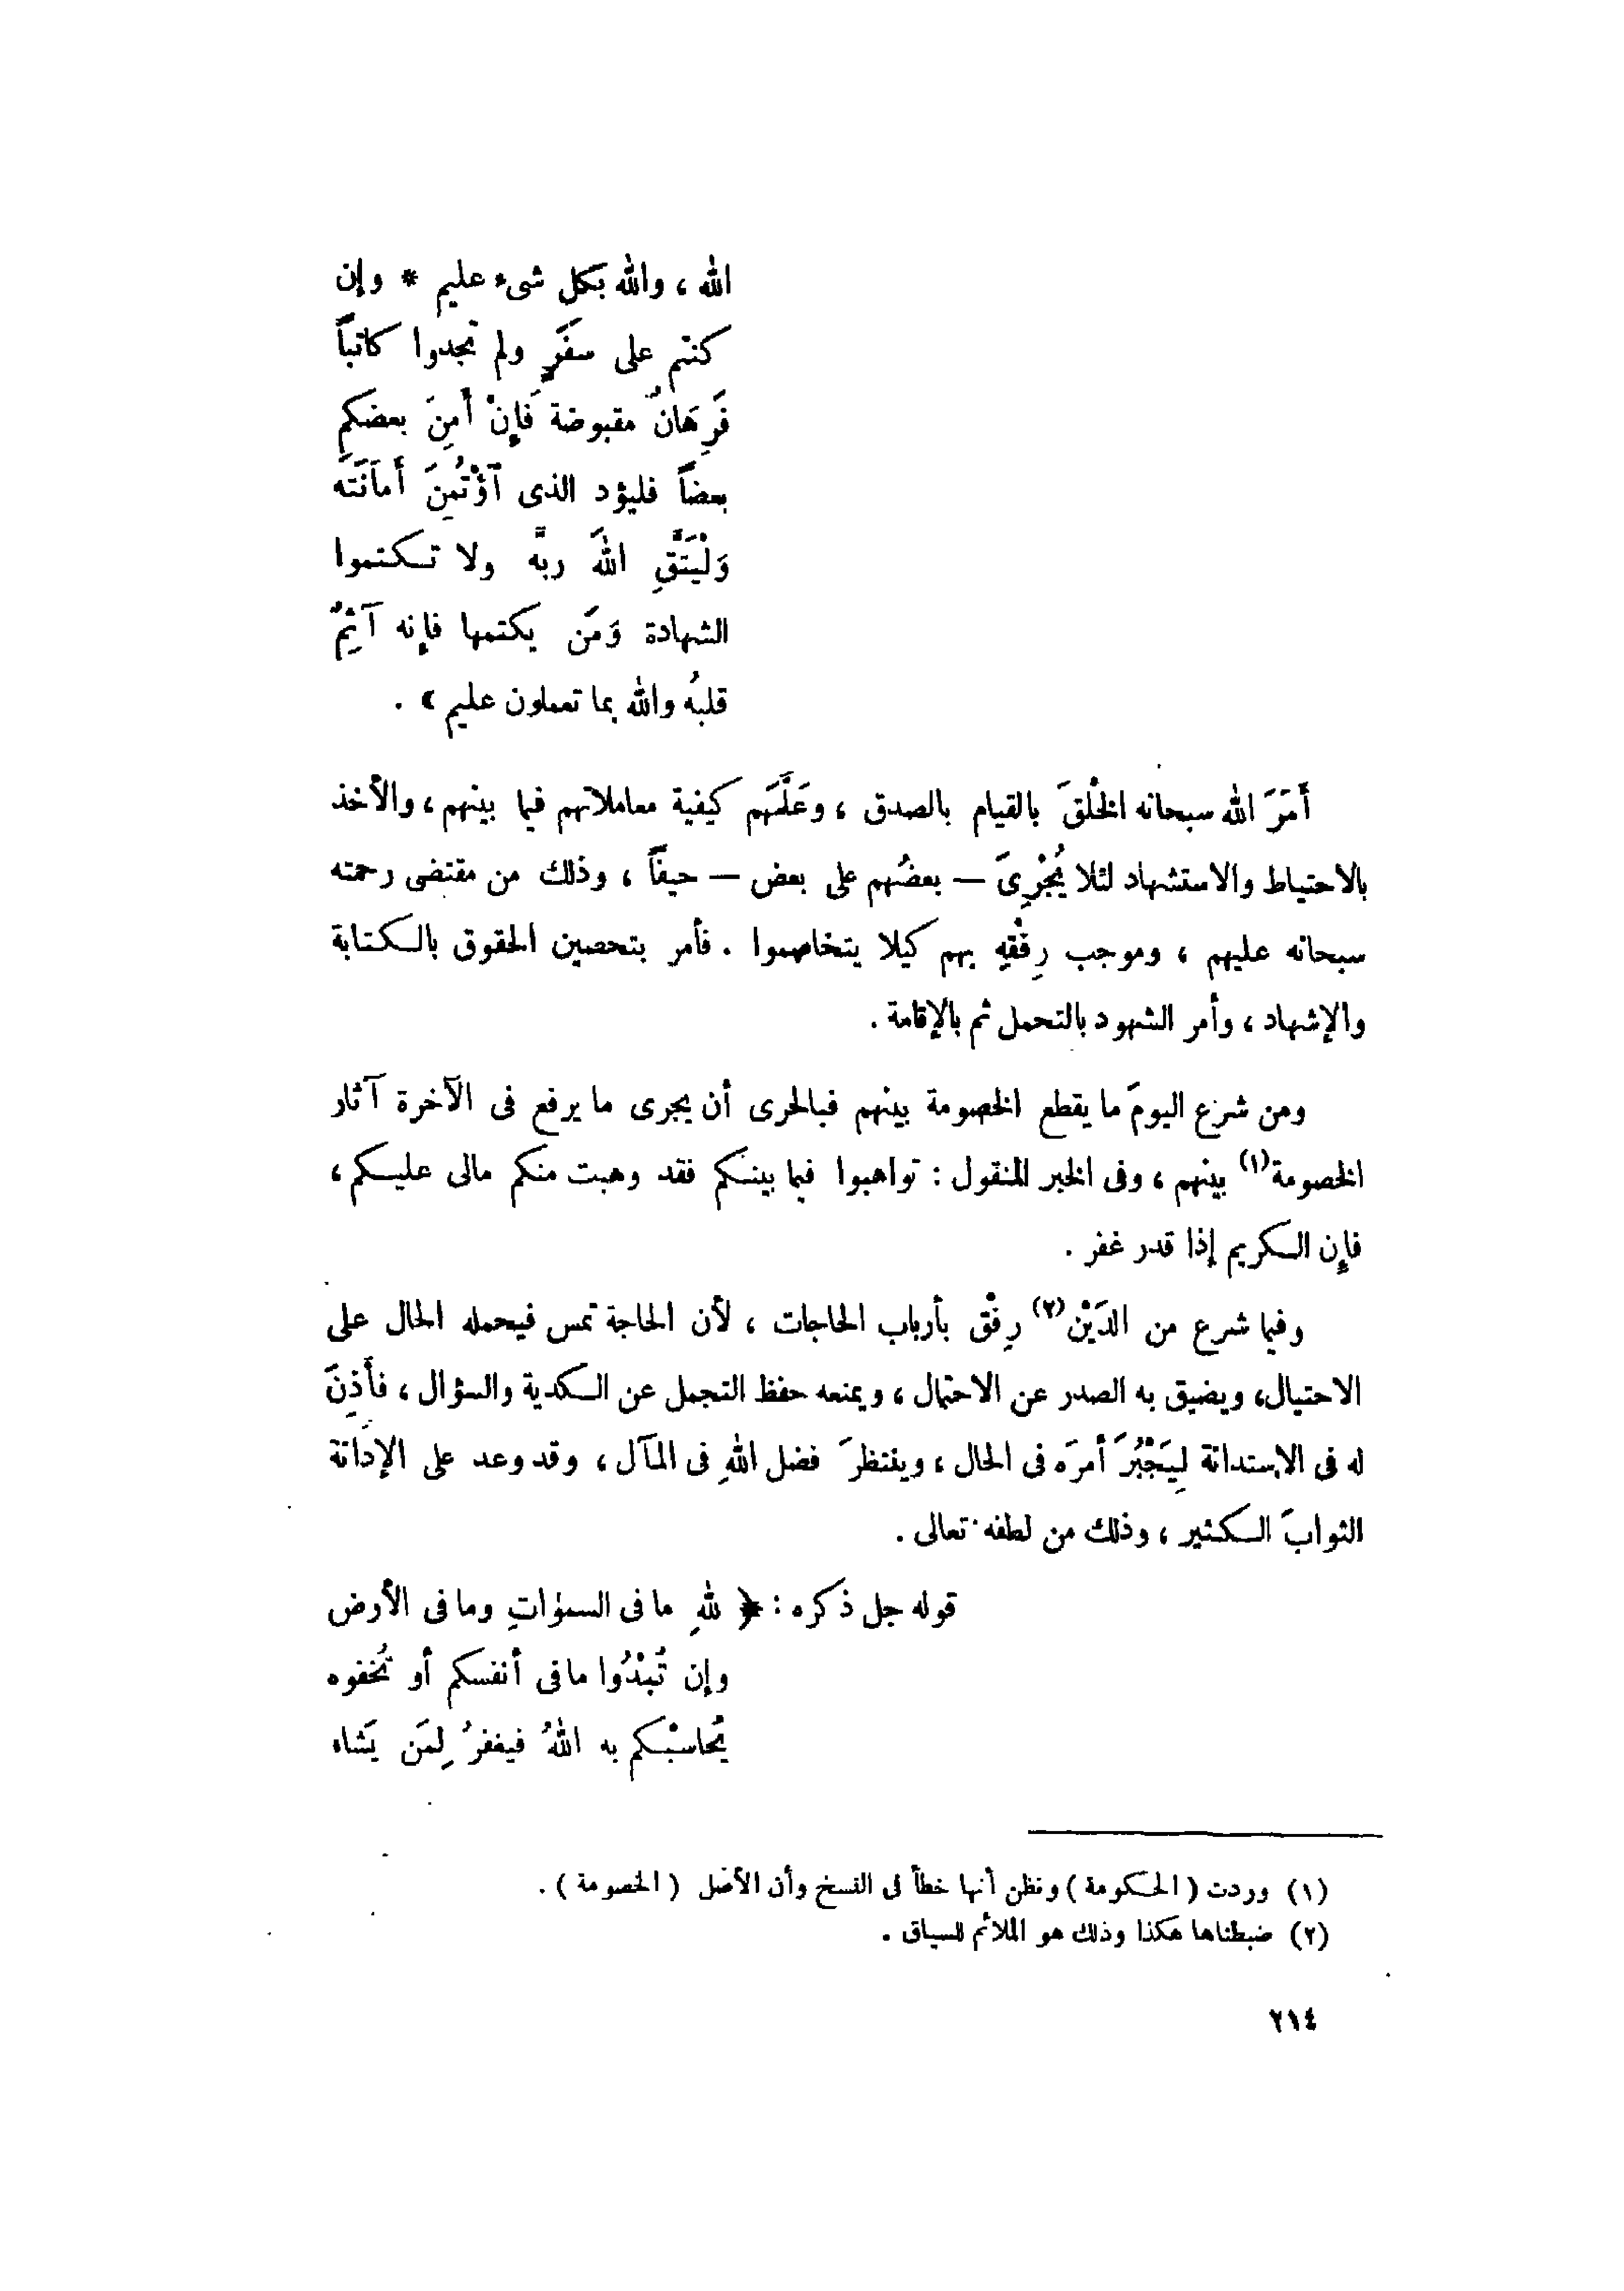 الله ، والله بكل شىء عليم * وإن
كنتم على سفَرٍ ولم تجدوا كاتباً
فَرِهَانٌ مقبوضة فَإِنْ أَمِنَ بعضكم
بعضاً فليؤد الذى آؤْتُمِنَ أَمَانَتَه
وَلْيَتَّقِ اللهَ ربَّه ولا تكتموا
الشهادة وَمَن يكتمها فإنه آثِمٌ
قلبُه والله بما تعملون عليم » .
أَمَرَ الله سبحانه الخْلقَ بالقيام بالصدق ، وعَلَّمَهم كيفية معاملاتهم فيما بينهم ، والأخذ
بالاحتياط والاستشهاد لئلا يُجْرِىَ — بعضُهم على بعض — حيفاً ، وذلك من مقتضى رحمته
سبحانه عليهم ، وموجب رِفْقِه بهم كيلا يتخاصموا . فأمر بتحصين الحقوق بالكتابة
والإشهاد ، وأمر الشهود بالتحمل ثم بالإقامة .
ومن شرع اليومَ ما يقطع الخصومة بينهم فبالحرى أن يجرى ما يرفع فى الآخرة آثار
الخصومة(١) بينهم ، وفى الخبر المنقول : تواهبوا فيما بينكم فقد وهبت منكم مالى عليكم ،
فإن الكريم إذا قدر غفر .
وفيما شرع من الدَيْن(٢) رِفْق بأرباب الحاجات ، لأن الحاجة تمس فيحمله الحال على
الاحتيال، ويضيق به الصدر عن الاحتمال ، ويمنعه حفظ التجمل عن الكدية والسؤال ، فأَذِنَ
له فى الاستدانة لِيَجْبُرَ أمرَه فى الحال ، وينتظرَ فضل اللهِ فى المآل ، وقد وعد على الإدَانة
الثوابَ الكثير ، وذلك من لطفه تعالى .
قوله جل ذكره : ﴿ للهِ ما فى السمٰواتِ وما فى الأرض
وإن تُبْدُوا ما فى أنفسكم أو تُخفوه
يُحاسبْكم به اللهُ فيغفرُ لِمَن يَشاء
(١) وردت ( الحكومة ) ونظن أنها خطأ فى النسخ وأن الأصل ( الخصومة ) .
(٢) ضبطناها هكذا وذلك هو الملائم للسياق .
٢١٤